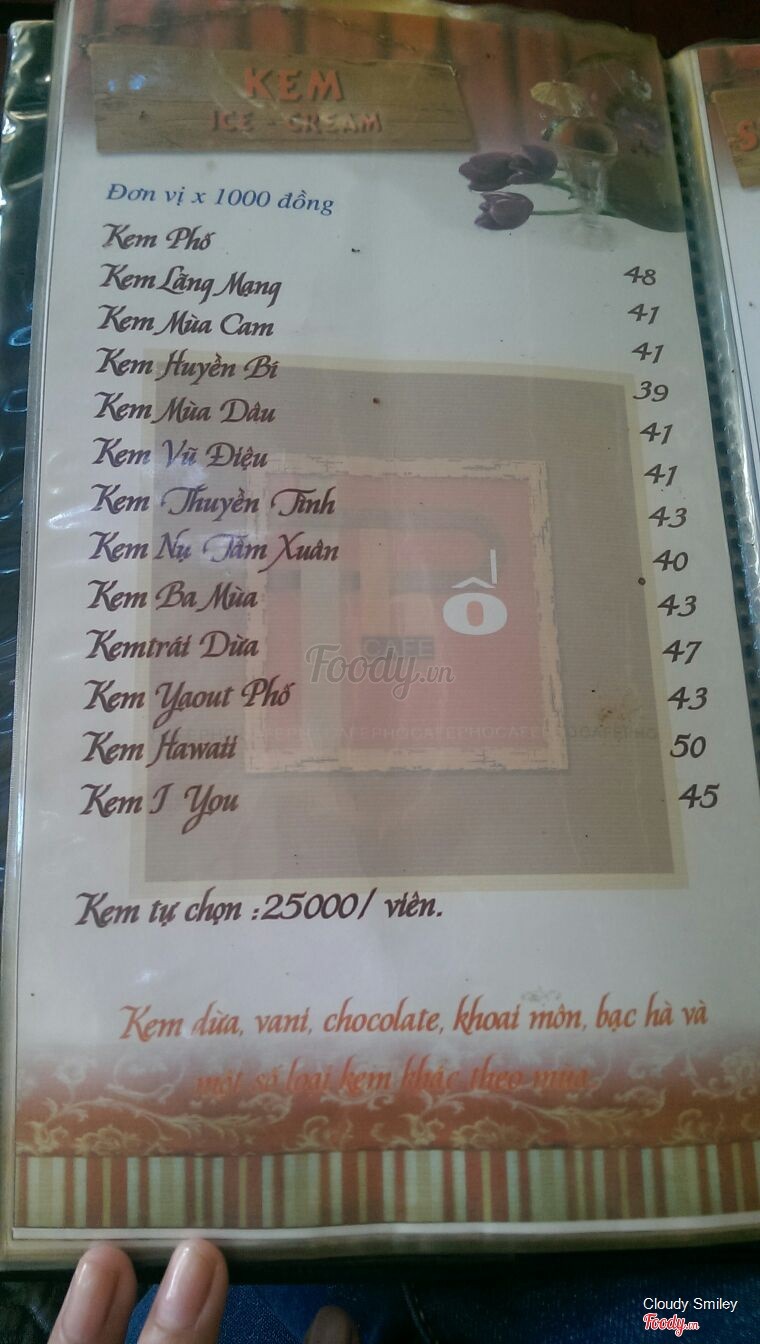 KEM
ICE - CREAM
Đơn vị x 1000 đồng
Kem Phố 48
Kem Lãng Mạng 41
Kem Mùa Cam 41
Kem Huyền Bí 39
Kem Mùa Dâu 41
Kem Vũ Điệu 41
Kem Thuyền Tình 43
Kem Nụ Tầm Xuân 40
Kem Ba Mùa 43
Kemtrái Dừa 47
Kem Yaout Phố 43
Kem Hawaii 50
Kem I You 45
Kem tự chọn :25000/ viên.
Kem dừa, vani, chocolate, khoai môn, bạc hà và
một số loại kem khác theo mùa.
Ố
CAFE
Foody.vn
Cloudy Smiley
Foody.vn